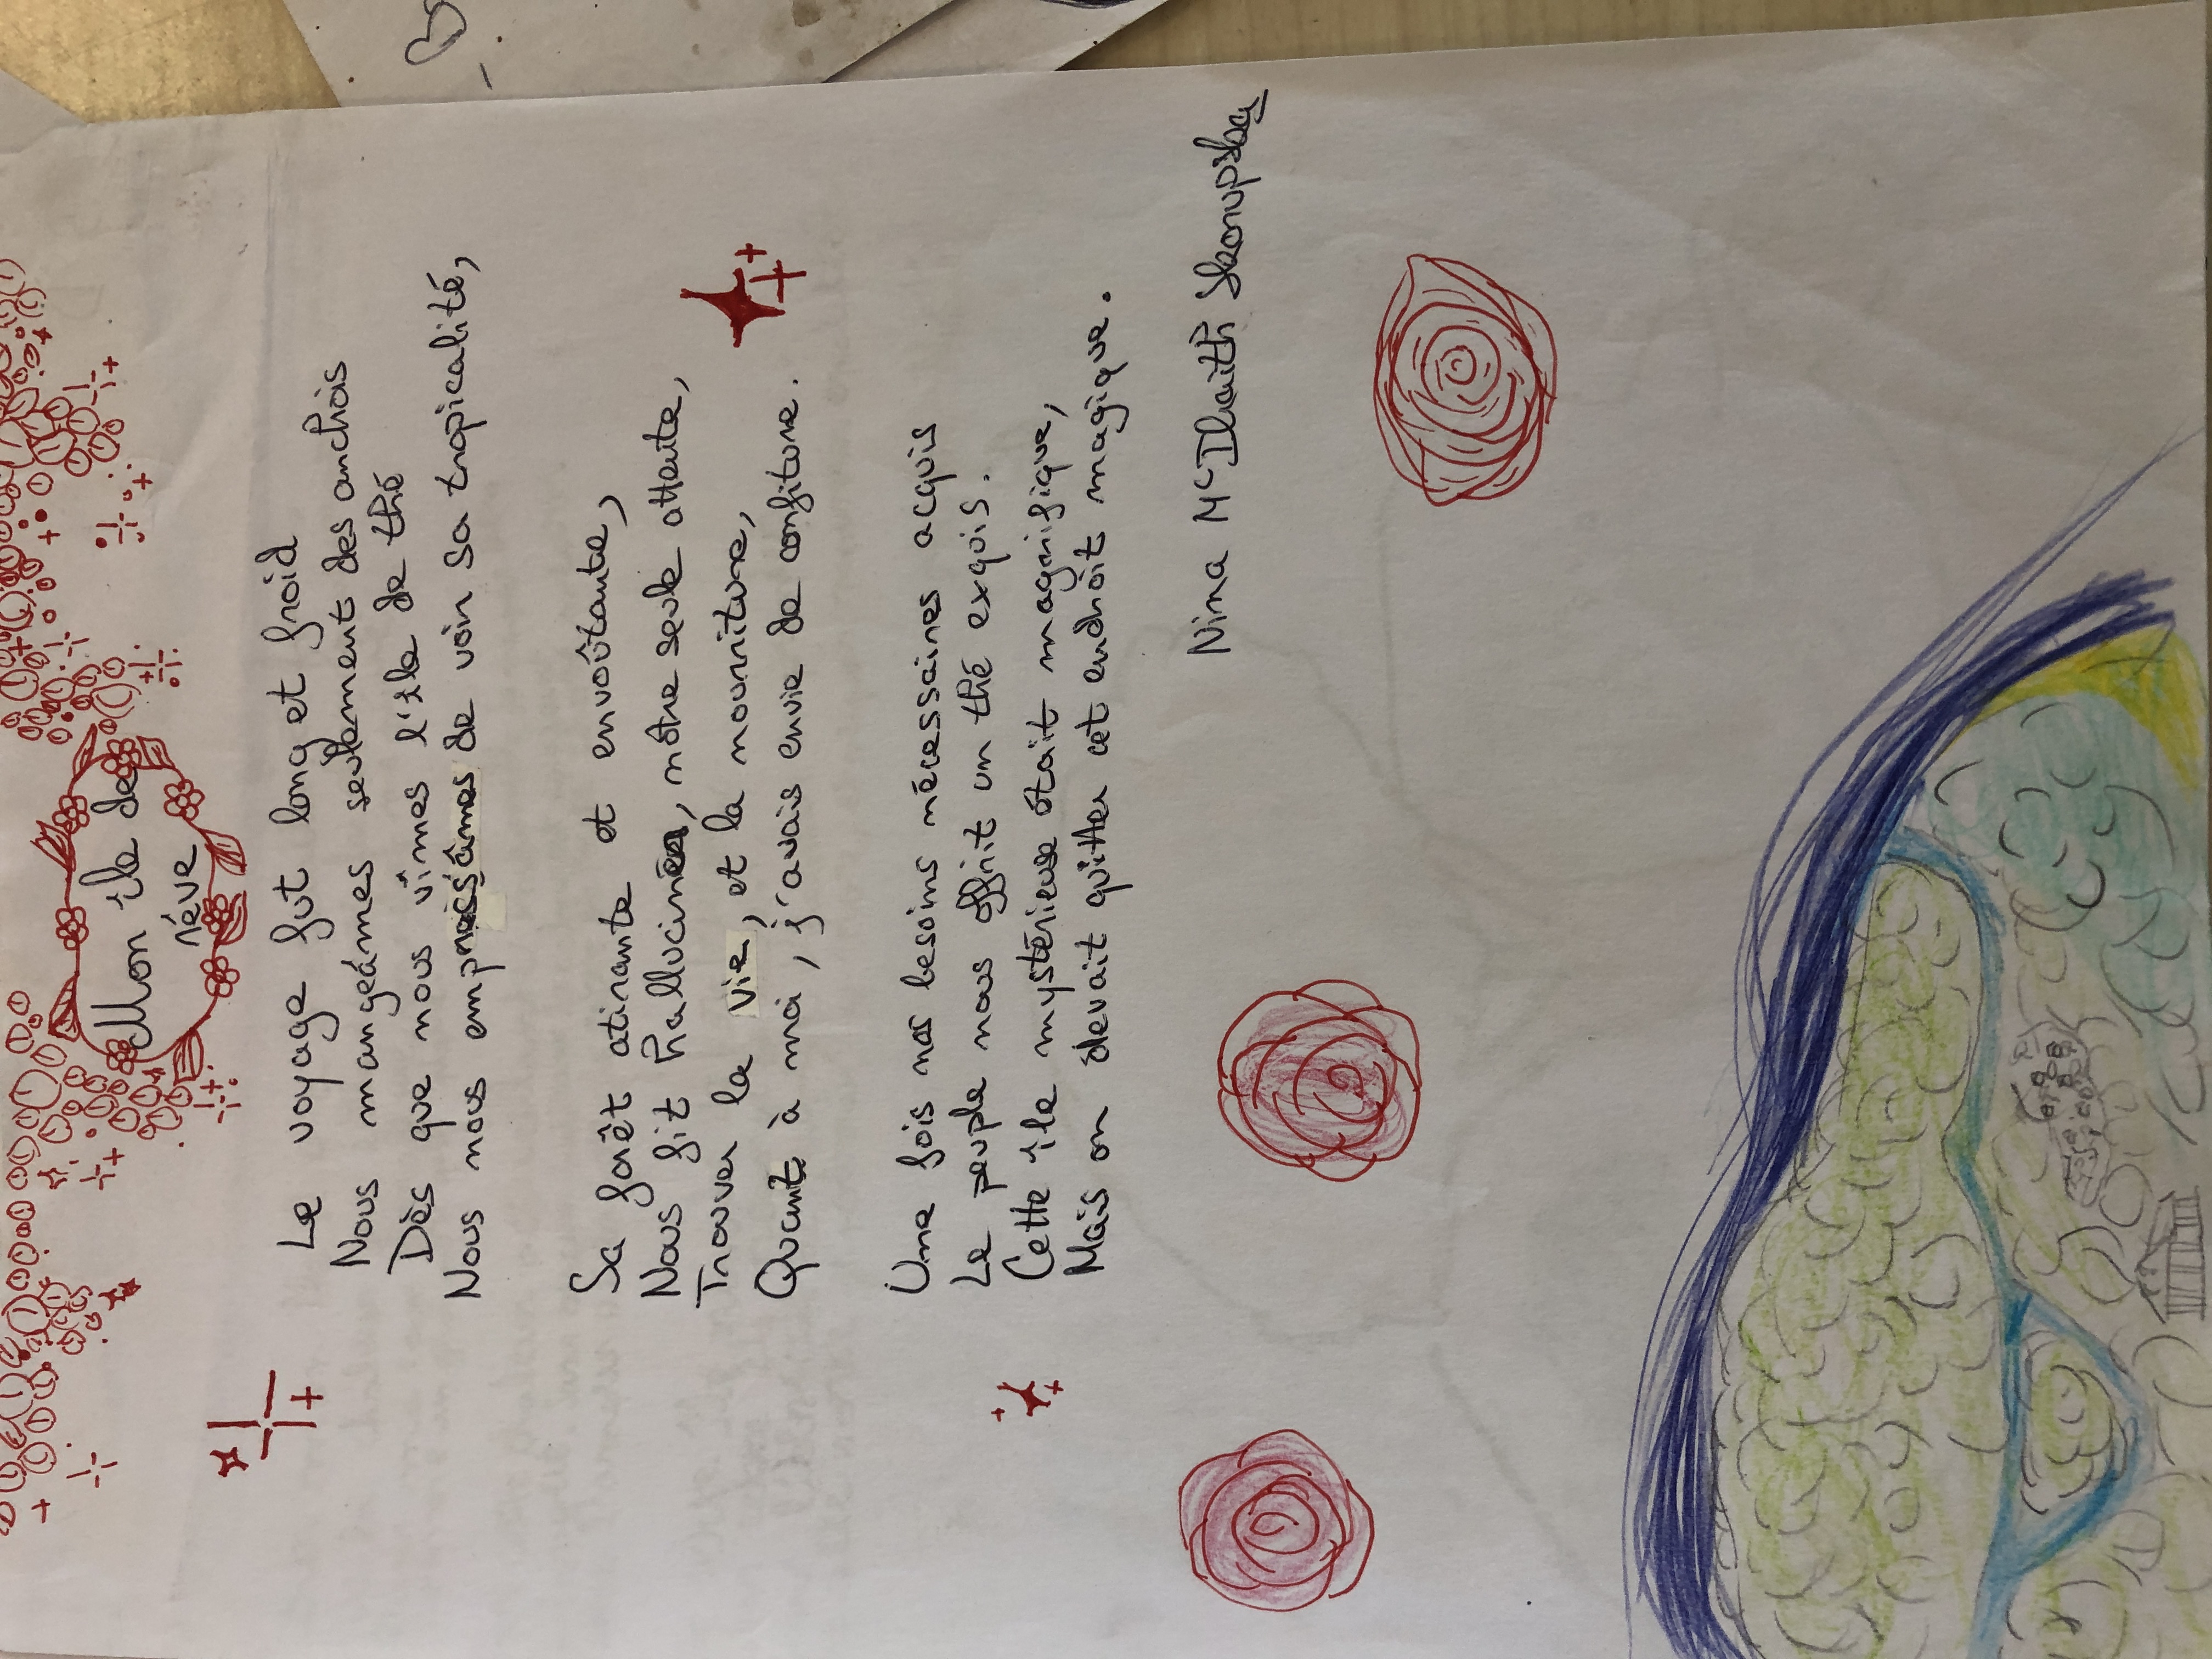 Mon île de
rêve
Le voyage fut long et froid
Nous mangeámes seulement des anchois
Dès que nous vîmes l'île de thé
Nous nous empressâmes de voir sa tropicalité,
Sa forêt atirante et envoûtante,
Nous fit halluciner, nôtre seule attente,
Trouver la vie, et la nourriture,
Quant à moi, j'avais envie de confiture.
Une fois nos besoins nécessaires acquis
Le peuple nous offrit un thé exqis.
Cette île mystérieuse était magnifique,
Mais on devait quitter cet endroit magique.
Nina McIlwaith